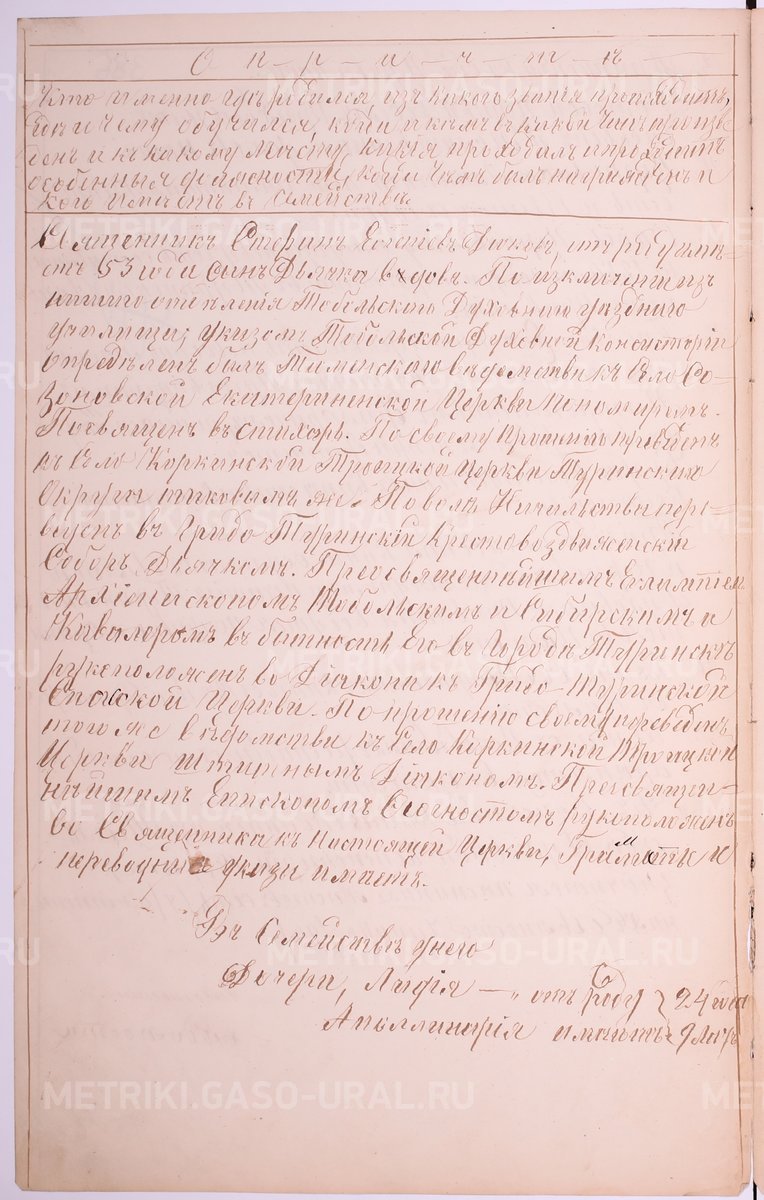 О п р и ч т ѣ
Кто именно гдѣ родился, изъ какого званія происходитъ,
гдѣ и чему обучался, когда и кѣмъ въ какой Чинъ произве-
денъ и къ какому мѣсту, какія проходилъ и проходитъ
особенныя должности, когда чѣмъ былъ награжденъ и
кого имѣетъ въ семействѣ.
Священникъ Стефанъ Евгеніевъ, отъ роду имѣ-
етъ 53 года сынъ Дьячка вдовъ. По изключеніи изъ
низшаго отдѣленія Тобольскаго Духовнаго уѣзднаго
училища, указомъ Тобольской Духовной Консисторіи
Опредѣленъ былъ Тюменскаго вѣдомства къ Село Со-
зоновской Екатериненской Церкви Пономаремъ.
Посвященъ въ стихарь. По своему прошенію переведенъ
къ Село Коркинской Троицкой Церкви Туринскаго
Округа таковымъ же. По волѣ Начальства пере-
веденъ въ Градо Туринскій Крестовоздвиженскій
Соборъ Дьячкомъ. Преосвященнѣйшимъ Евлампіем
Архіепископомъ Тобольскимъ и Сибирскимъ и
Кавалеромъ въ бытность Его въ Городѣ Туринскѣ
рукоположенъ во Діакона къ Градо-Туринской
Спасской Церкви. По прошенію своему переведенъ
того же вѣдомства къ Село Коркинской Троицкой
Церкви штатнымъ Діакономъ. Преосвящен-
нѣйшимъ Епископомъ Ѳеогностомъ рукоположенъ
во Священника къ настоящей Церкви, Грамоты и
переводные указы имѣетъ.
Въ Семействѣ у него
Дочери, Лидія — „ отъ роду } 24 года
Аполлинарія имѣютъ } 9 лѣтъ
METRIKI.GASO-URAL.RU